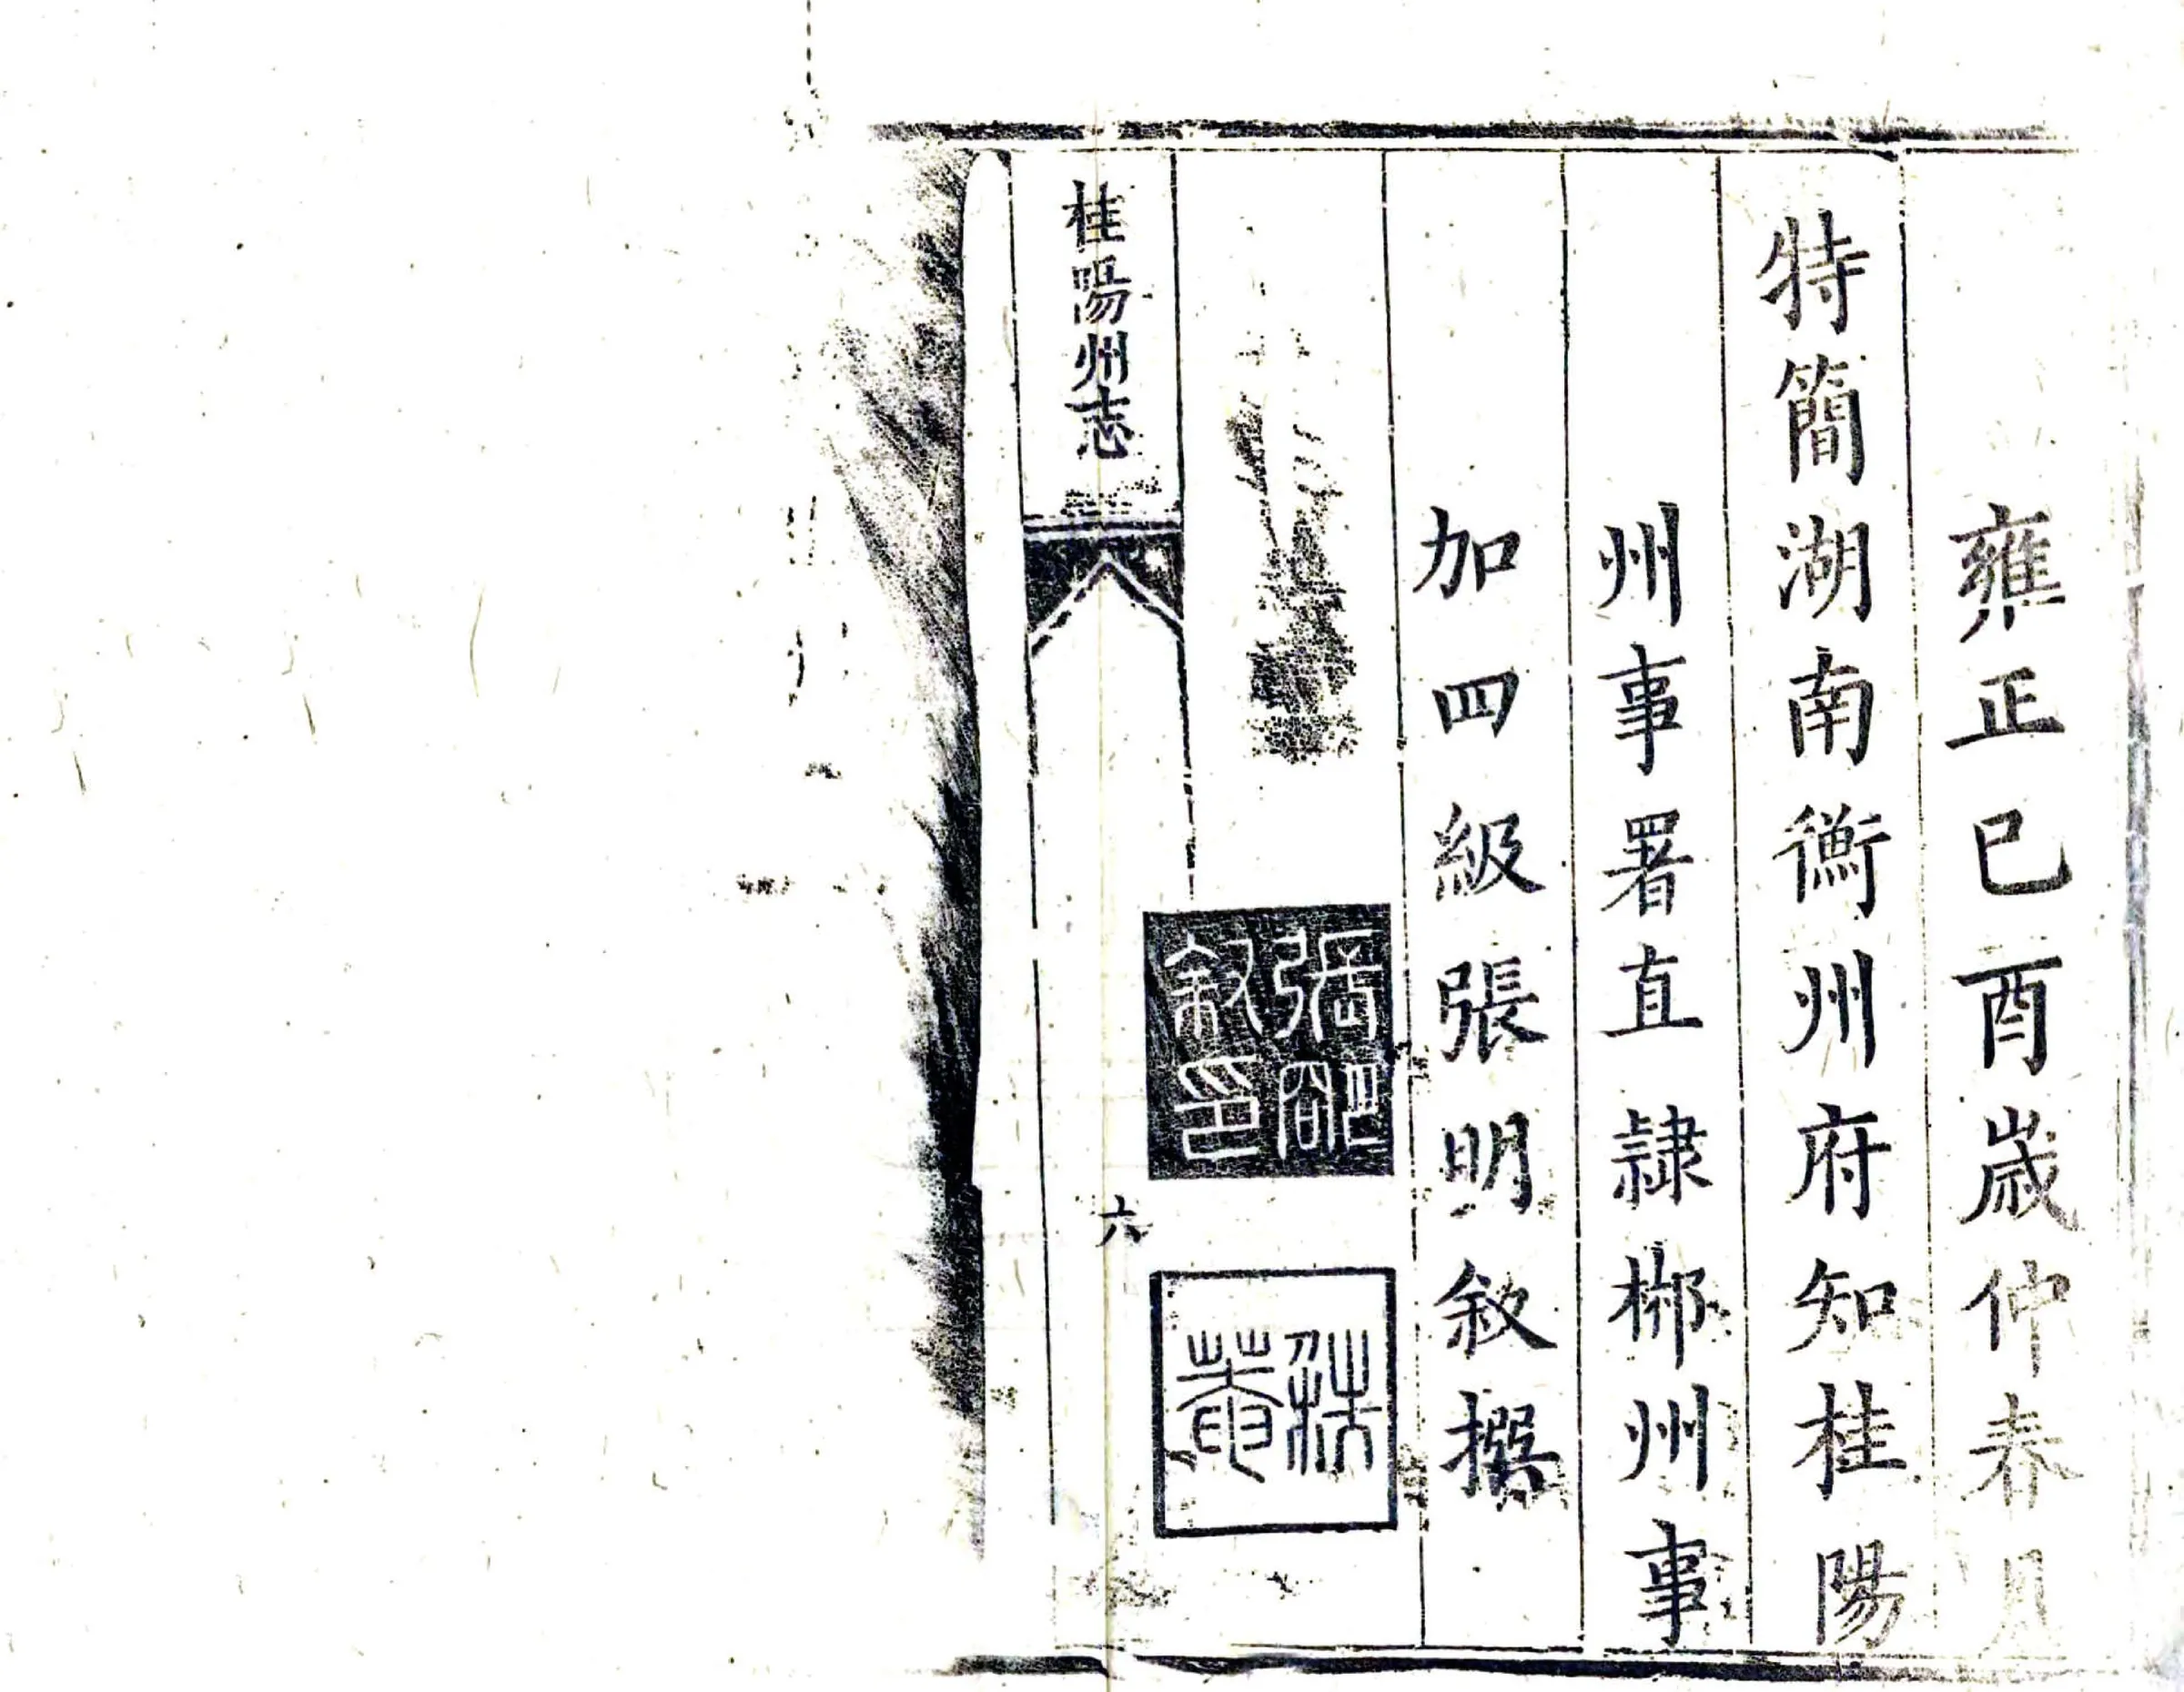 雍正己酉嵗仲春月
特簡湖南衡州府知桂陽
州事署直隸郴州事
加四級張明敘撰
張明
敘印
桂陽州志
六